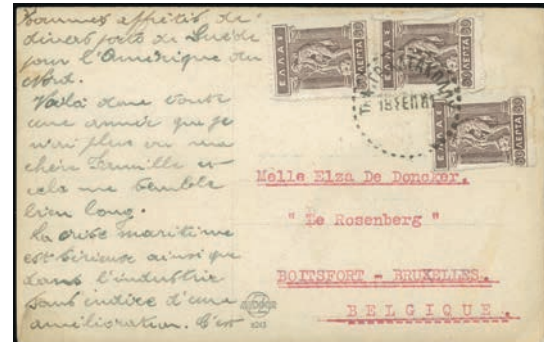 sommes affrétés de
divers ports de Suède
pour l'Amérique du
Nord.
Voilà donc toute
une année que je
n'ai plus vu ma
chère Famille et
cela me semble
bien long.
La crise maritime
est sérieuse ainsi que
dans l'industrie
sans indice d'une
amélioration. C'est
ΕΛΛΑΣ
ΛΕΠΤΑ
ΕΛΛΑΣ
ΛΕΠΤΑ
ΕΛΛΑΣ
ΛΕΠΤΑ
Melle Elza De Doncker.
" Le Rosenberg "
BOITSFORT - BRUXELLES.
BELGIQUE.